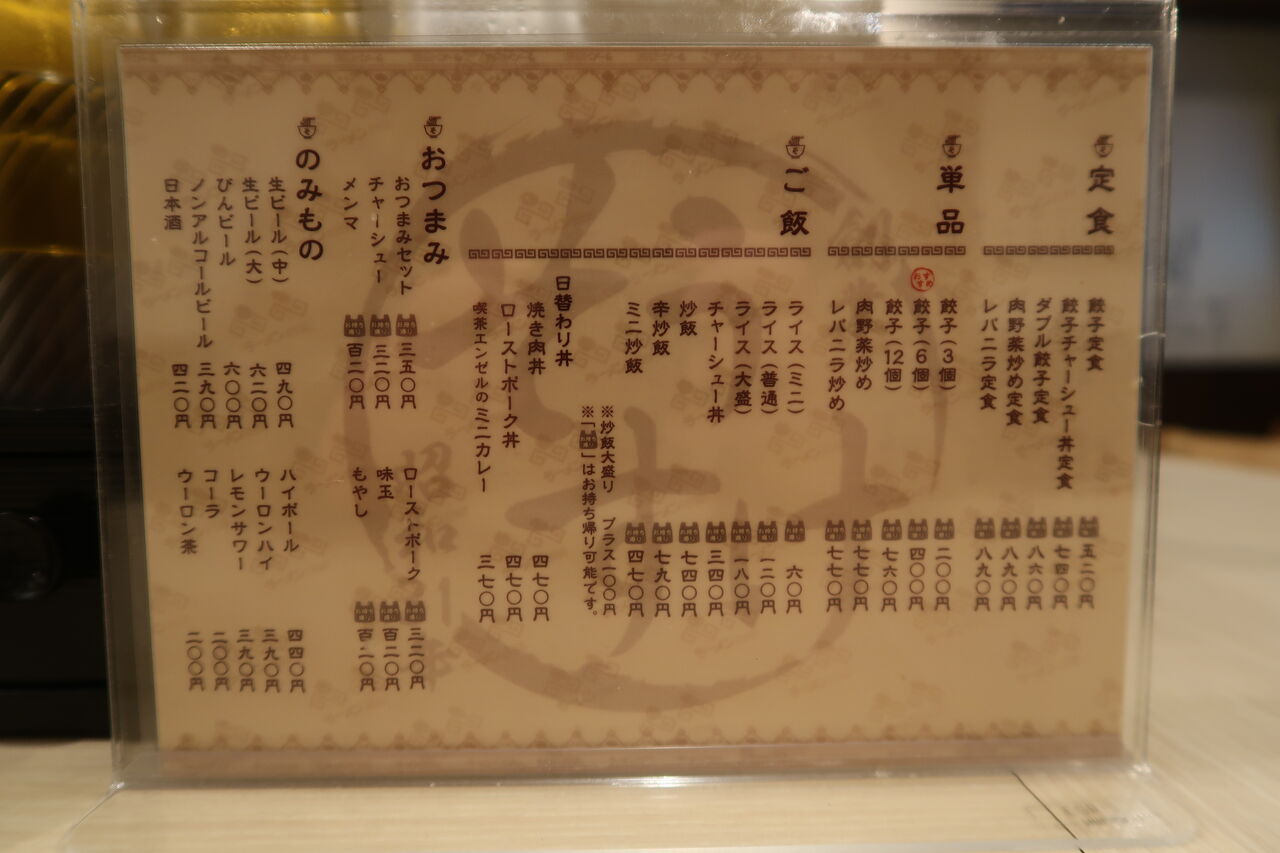 定食
餃子定食 五二〇円
餃子チャーシュー丼定食 七四〇円
ダブル餃子定食 八六〇円
肉野菜炒め定食 八九〇円
レバニラ定食 八九〇円
単品
餃子(3個) 二〇〇円
おすすめ
餃子(6個) 四〇〇円
餃子(12個) 七六〇円
肉野菜炒め 七七〇円
レバニラ炒め 七七〇円
ご飯
ライス(ミニ) 六〇円
ライス(普通) 一二〇円
ライス(大盛) 一八〇円
チャーシュー丼 三四〇円
炒飯 七四〇円
辛炒飯 七九〇円
ミニ炒飯 四七〇円
※炒飯大盛り プラス一〇〇円
※「お持ち帰り」はお持ち帰り可能です。
日替わり丼
焼き肉丼 四七〇円
ローストポーク丼 四七〇円
喫茶エンゼルのミニカレー 三七〇円
おつまみ
おつまみセット 三五〇円
チャーシュー 三二〇円
メンマ 百二〇円
ローストポーク 三二〇円
味玉 百二〇円
もやし 百二〇円
のみもの
生ビール(中) 四九〇円
生ビール(大) 六二〇円
びんビール 六〇〇円
ノンアルコールビール 三九〇円
日本酒 四二〇円
ハイボール 四四〇円
ウーロンハイ 三九〇円
レモンサワー 三九〇円
コーラ 二〇〇円
ウーロン茶 二〇〇円